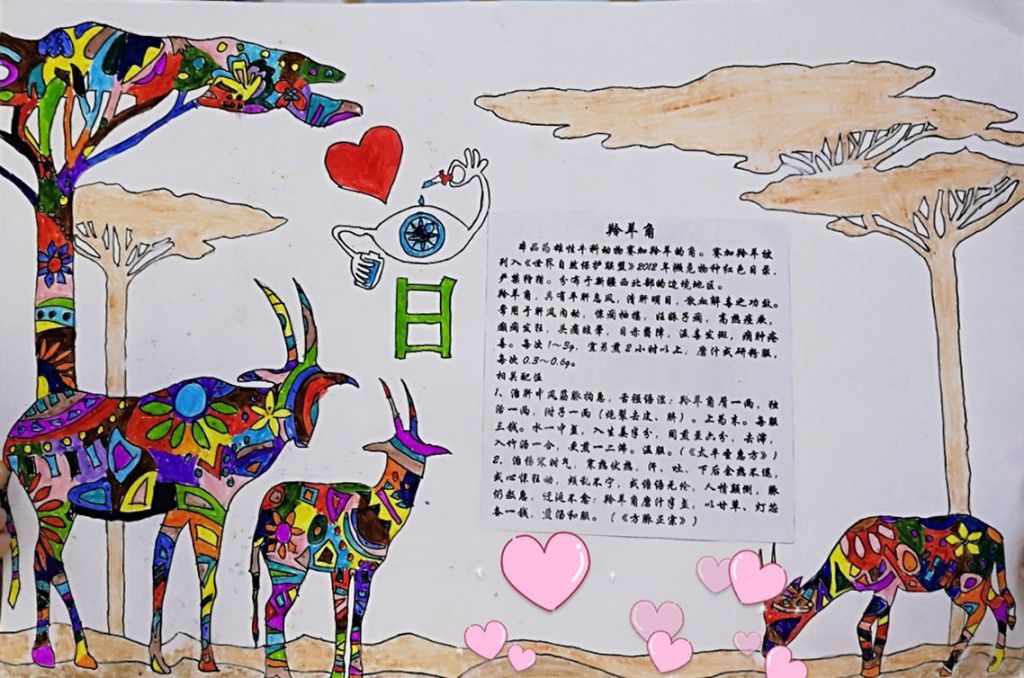 日
羚羊角
本品药雄性牛科动物赛加羚羊的角。赛加羚羊被
列入《世界自然保护联盟》2012年濒危物种红色目录,
严禁特猎。分布于新疆西北部的边境地区。
羚羊角,具有平肝息风,清肝明目,散血解毒之功效。
常用于肝风内动,惊痫抽搐,妊娠子痫,高热痉厥,
癫痫发狂,头痛眩晕,目赤翳障,温毒发斑,痈肿疮
毒。每次1~3g,宜另煎2小时以上;磨汁或研粉服,
每次0.3~0.6g。
相关配伍
1、治肝中风筋脉拘急,舌强语涩:羚羊角屑一两,独
活一两,附子一两(炮裂去皮、脐)。上为末。每服
三钱。水一中盏,入生姜半分,同煎至六分,去滓,
入竹沥一合,更煎一二沸。温服。(《太平圣惠方》)
2、治伤寒时气,寒热伏热,汗、吐、下后余热不退,
或心惊狂动,烦乱不宁,或谵语无伦,人情颠倒,脉
仍数急,迁延不愈:羚羊角磨汁半盏,以甘草、灯芯
各一钱,煎汤和服。(《方脉正宗》)